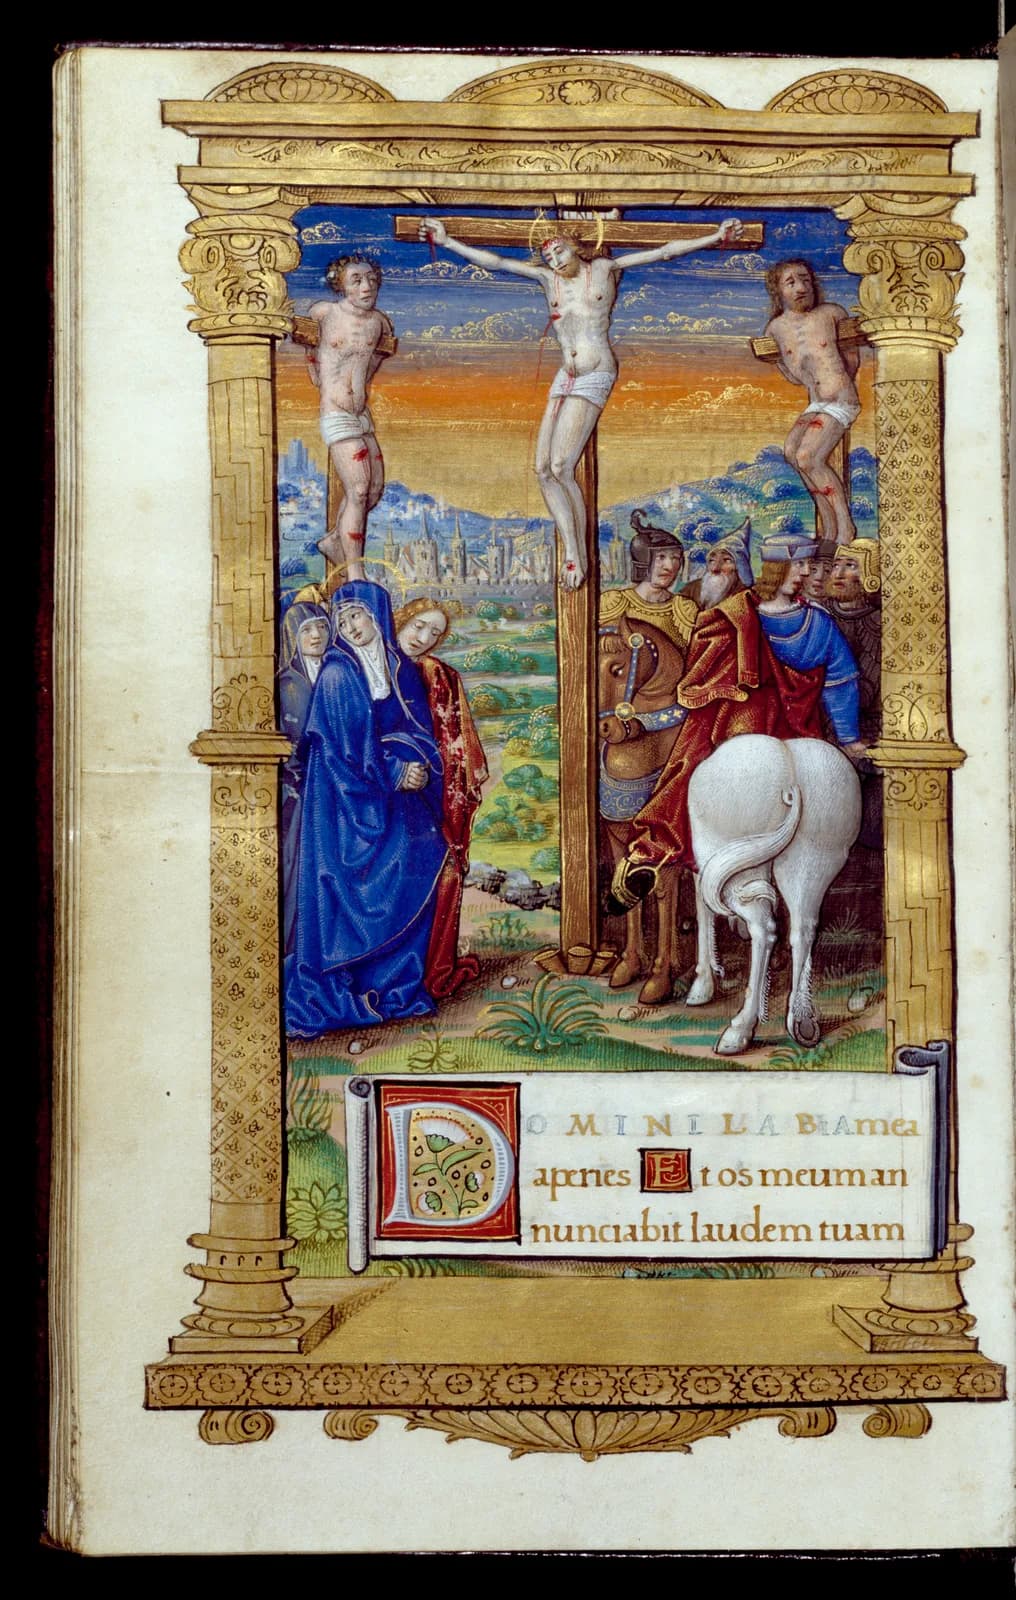 DOMINE LABIA mea
aperies Et os meum an
nunciabit laudem tuam